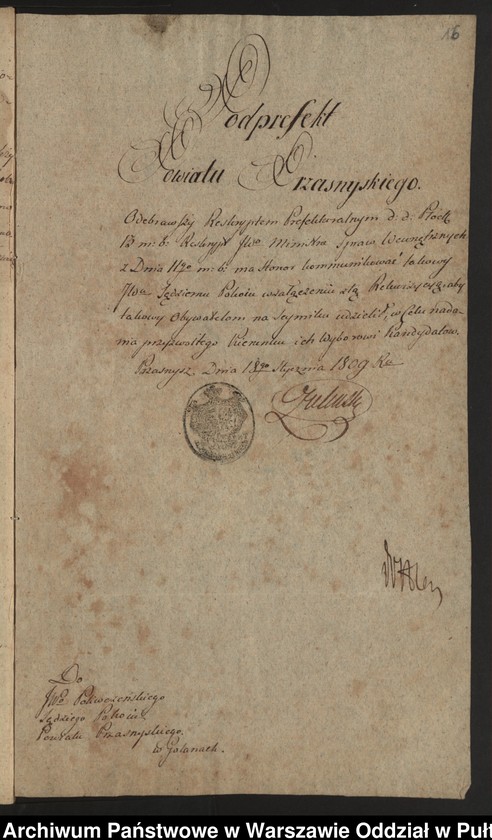 16
Podprefekt
Powiatu Przasnyskiego.
Odebrawszy Reskryptem Prefekturalnym d. d. Płock
13 m. b. Reskrypt JWo Ministra Spraw Wewnętrznych
z Dnia 11go m. b. ma Honor kommunikować takowy
JWu Sędziemu Pokoiu w załączeniu z tą Rekwizycyą, aby
takowy Obywatelom na Seymiku udzielił, w Celu nada-
nia przyzwoitego kierunku ich Wyborowi Kandydatow.
Przasnysz, Dnia Stycznia 1809 Ro
Do
JWo
Sędziego Pokoiu
Powiatu Przasnyskiego.
w
Archiwum Państwowe w Warszawie Oddział w Puł